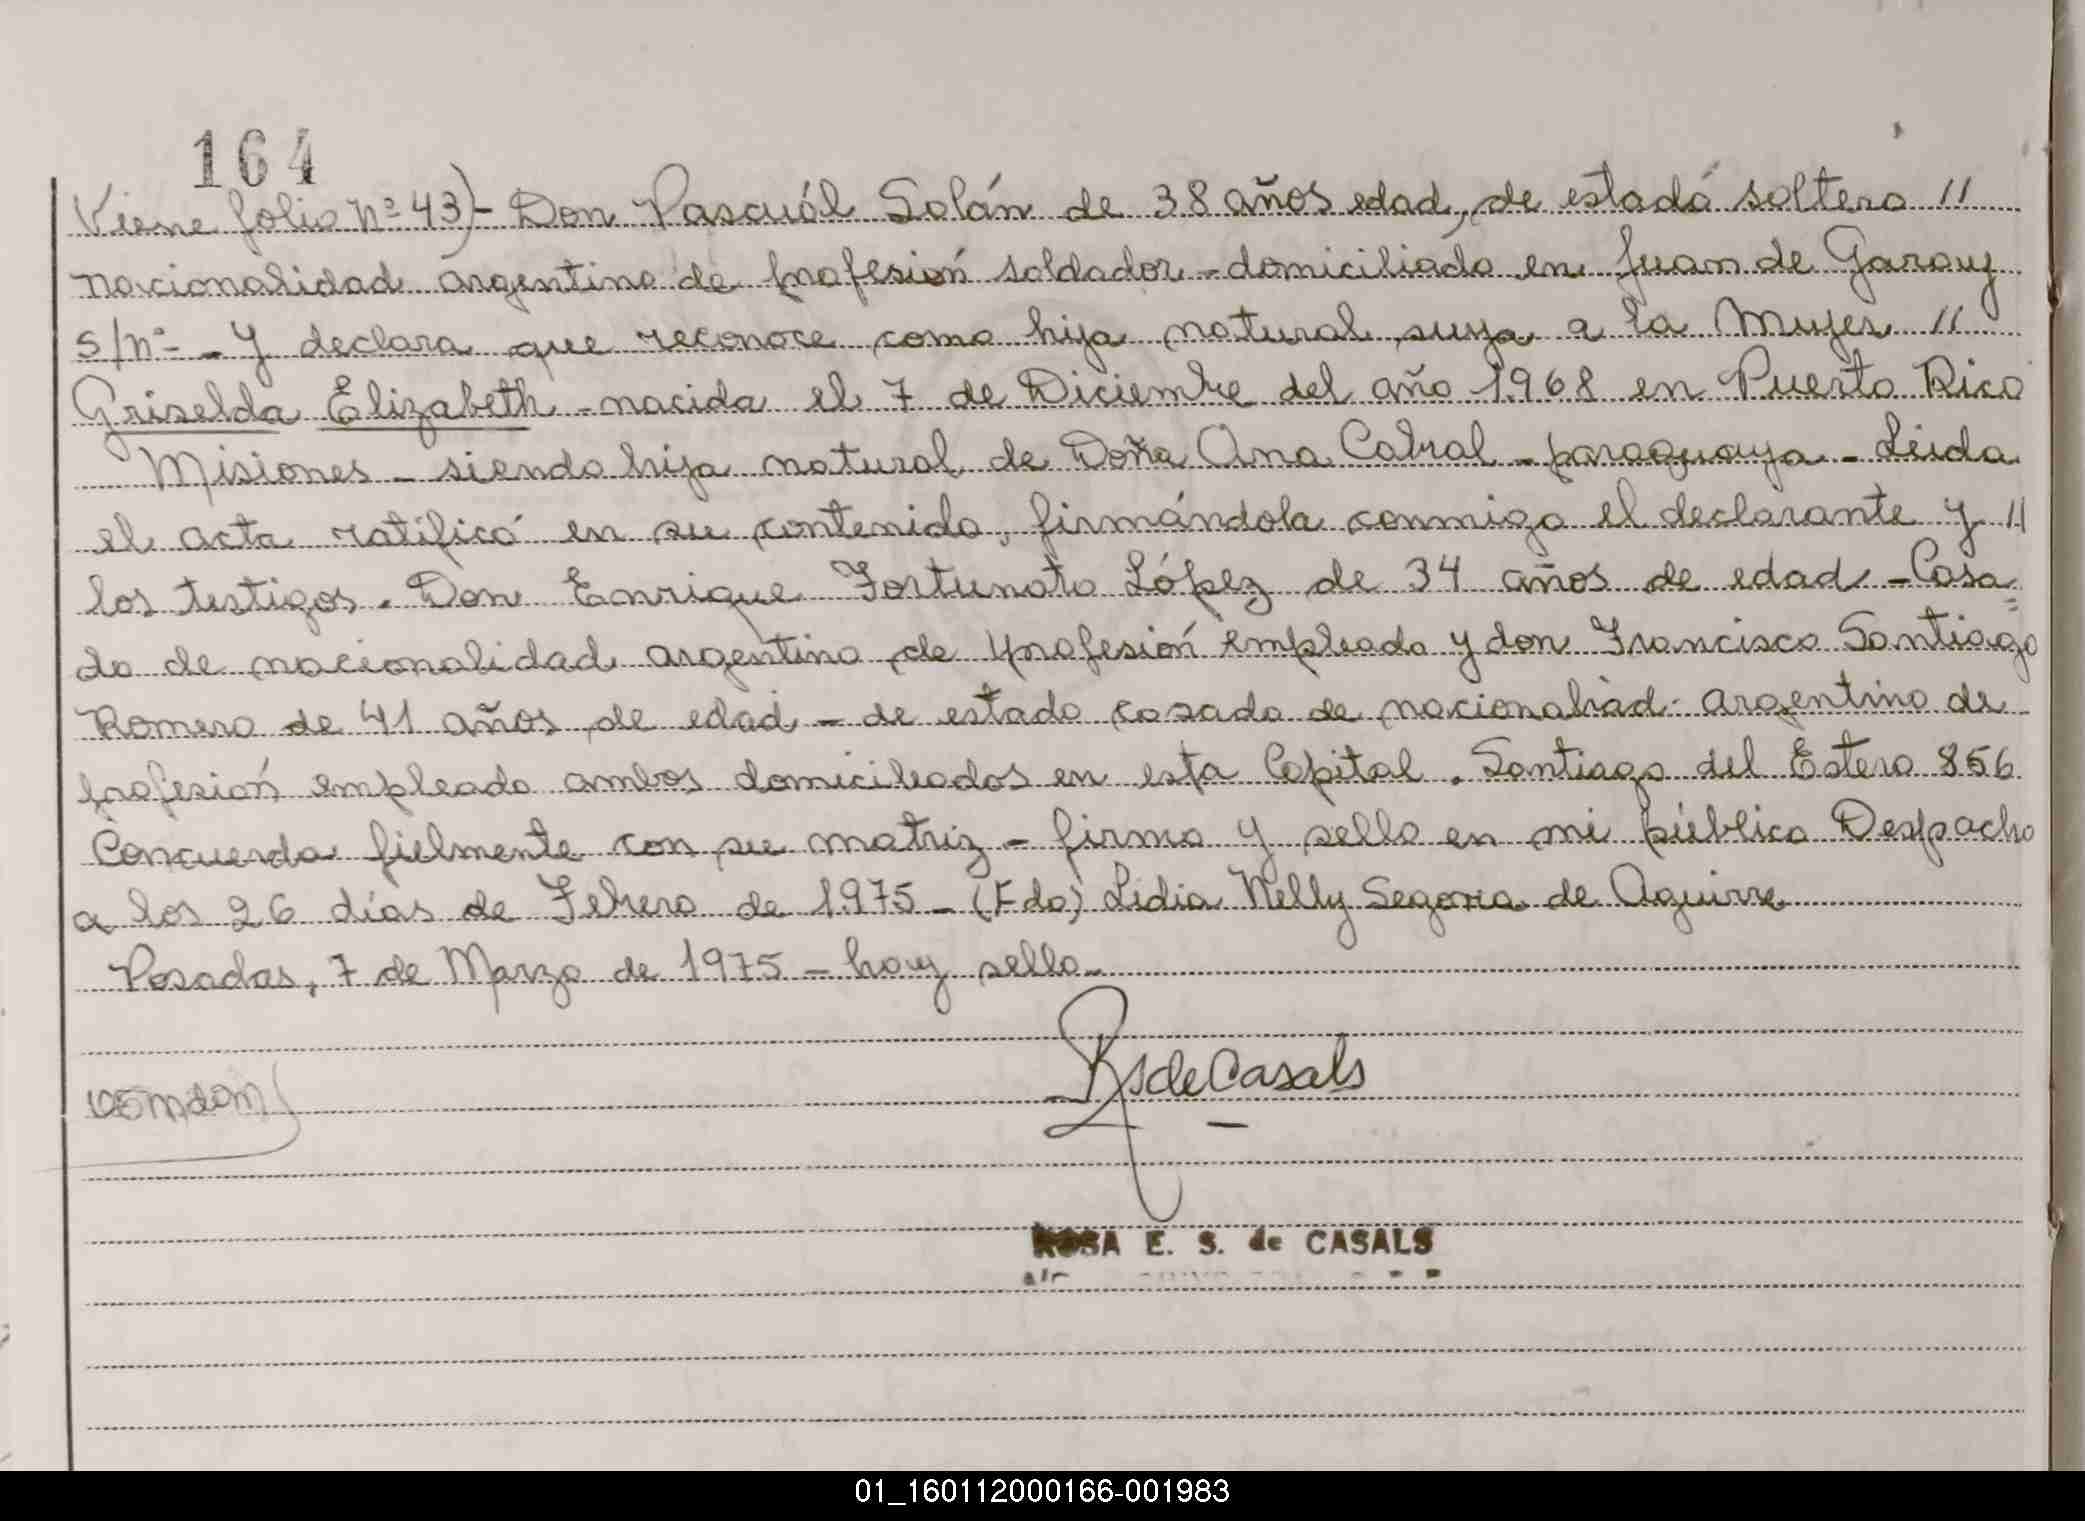 164
Viene folio Nº 43)- Don Pascuál Solán de 38 años edad, de estado soltero //
nacionalidad argentino de profesión soldador - domiciliado en Juan de Garay
s/nº - Y declara que reconoce como hija natural suya a la Mujer //
Griselda Elizabeth - nacida el 7 de Diciembre del año 1968 en Puerto Rico
Misiones - siendo hija natural de Doña Ana Cabral - paraguaya - Leida
el acta ratificó en su contenido, firmándola conmigo el declarante y //
los testigos. Don Enrique Fortunato López de 34 años de edad - Casa=
do de nacionalidad argentino de profesión empleado y don Francisco Santiago
Romero de 41 años de edad - de estado casado de nacionaliad argentino de
profesión empleado ambos domiciliados en esta Capital. Santiago del Estero 856
Concuerda fielmente con su matriz - firmo y sello en mi público Despacho
a los 26 días de Febrero de 1975 - (Fdo) Lidia Nelly Segovia de Aguirre
Posadas, 7 de Marzo de 1975 - hay sello -
RsdeCasals
ROSA E. S. de CASALS
01_160112000166-001983